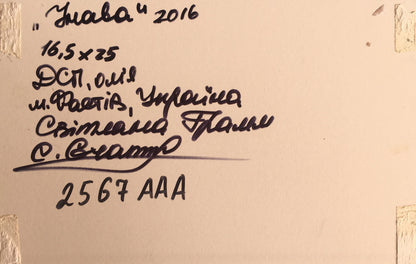 „Унава" 2016
16,5 x 25
ДСП, олія
м. Фастів, Україна
Світлана Грамм
С.
2567 ААА